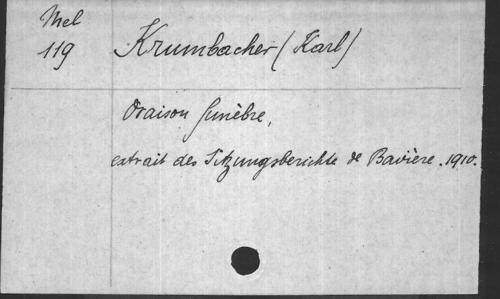 Mel
119
Krumbacher (Karl)
Oraison funèbre,
extrait des Sitzungsberichte de Bavière. 1910.